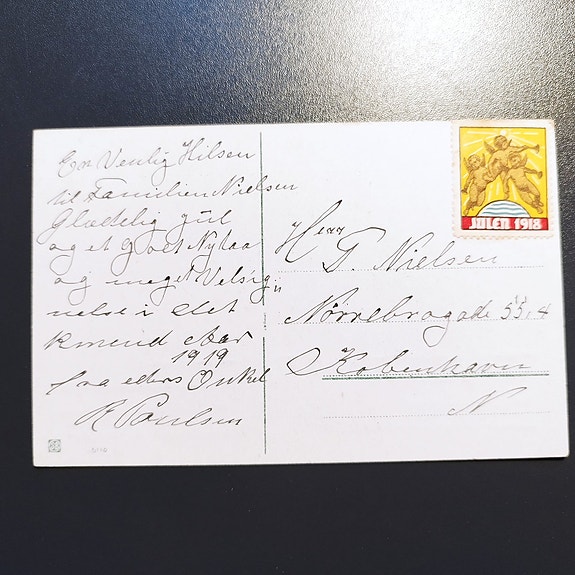 En Venlig Hilsen
til Familien Nielsen
Glædelig Jul
og et godt Nytaa
og meget Velsig
nelse i det
kmend Aar
1919
fra eders Onkel
R Poulsen
JULEN 1918
Herr
T. Nielsen
Nørrebrogade 55, 4
København
N